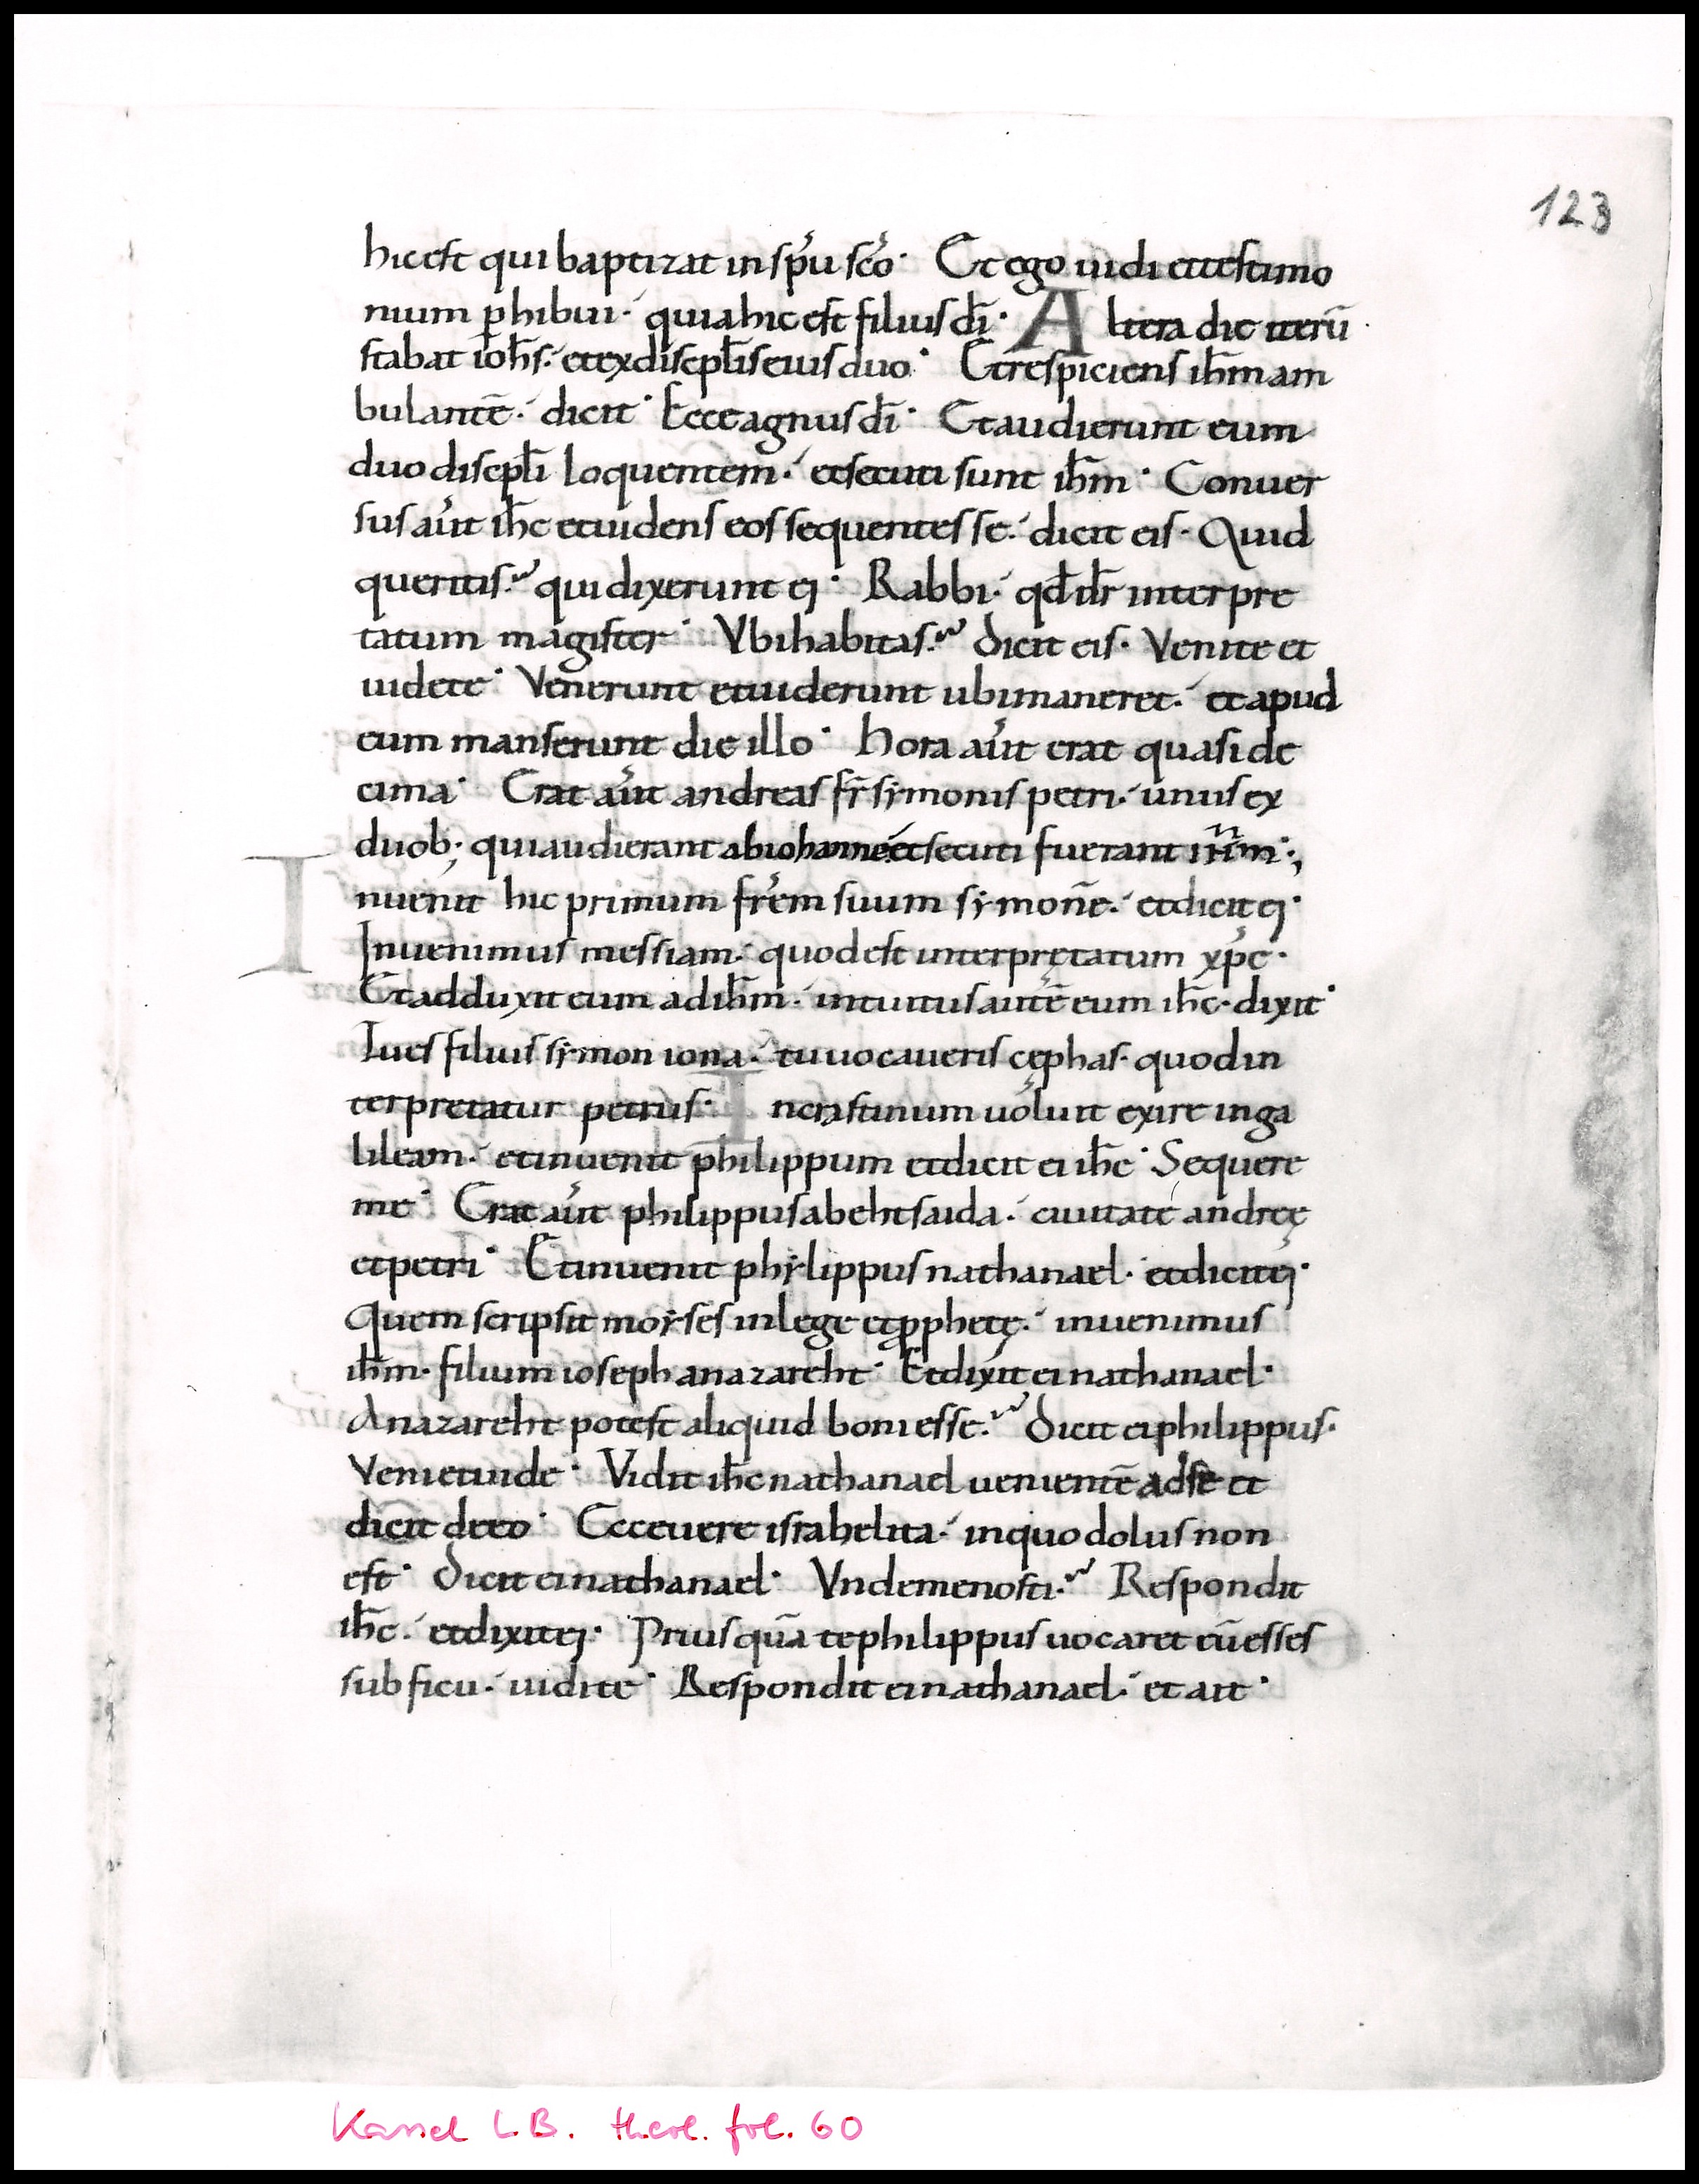 123
hic est qui baptizat in sp̄u sc̄o· Et ego uidi et testimo
nium ꝑhibui· quia hic est filius dī· Altera die iterū
stabat ioh̄s· et ex discipl̄is eius duo· Et respiciens ih̄m am
bulantē· dicit· Ecce agnus dī· Et audierunt eum
duo discipl̄i loquentem· et secuti sunt ih̄m· Conuer
sus aūt ih̄c et uidens eos sequentes se· dicit eis· Quid
queritis· qui dixerunt ei· Rabbi· qd̄ dr̄ interpre
tatum magister· Vbi habitas· dicit eis· Venite et
uidete· Venerunt et uiderunt ubi maneret· et apud
eum manserunt die illo· hora aūt erat quasi de
cima· Erat aūt andreas fr̄ symonis petri· unus ex
duob; qui audierant ab iohanne et secuti fuerant ih̄m·,
Inuenit hic primum fr̄em suum symonē· et dicit ei·
Inuenimus messiam· quod est interprętatum xp̄c·
Et adduxit eum ad ih̄m· intuitus autē eum ih̄c· dixit·
Tu es filius symon iona· tu uocaueris cęphas· quod in
terpretatur petrus· In crastinum uoluit exire in ga
lileam· et inuenit philippum et dicit ei ih̄c· Sequere
me· Erat aūt philippus a behtsaida· ciuitate andreę
et petri· Et inuenit phylippus nathanael· et dicit ei·
Quem scripsit moyses in lege et ꝓphetę· inuenimus
ih̄m· filium ioseph a nazareht· Et dixit ei nathanael·
A nazareht potest aliquid boni esse· dicit ei philippus·
Veni et uide· Vidit ih̄c nathanael uenientē ad se et
dicit de eo· Ecce uere israhelita· in quo dolus non
est· dicit ei nathanael· Vnde me nosti· Respondit
ih̄c· et dixit ei· Priusquā te philippus uocaret cū esses
sub ficu· uidi te· Respondit ei nathanael· et ait·
Kassel L.B. theol. fol. 60